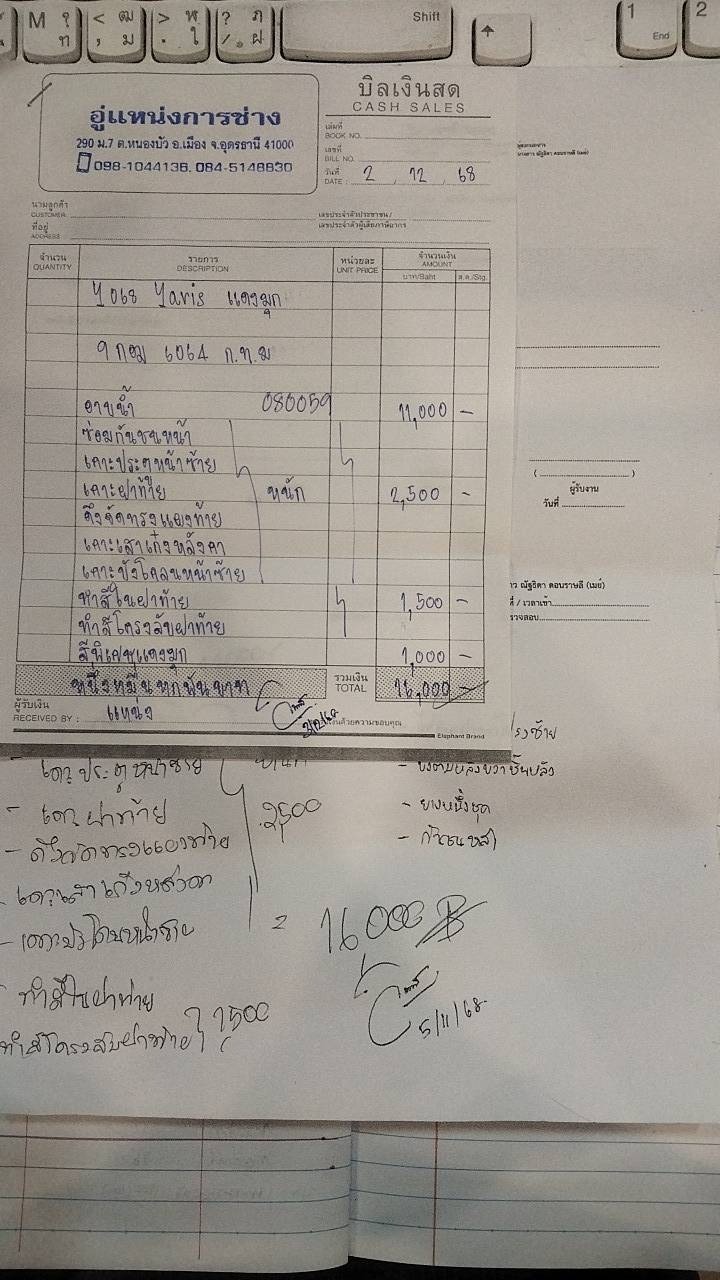 M ้ ท
< ฒ , ม
> ฬ . ใ
? ฦ / ฝ
Shift
1 End
2
อู่แหน่งการช่าง
290 ม.7 ต.หนองบัว อ.เมือง จ.อุดรธานี 41000
098-1044136, 084-5148830
บิลเงินสด
CASH SALES
เล่มที่
BOOK NO.
เลขที่
BILL NO.
วันที่
DATE : 2 , 12 , 68
นามลูกค้า
CUSTOMER
ที่อยู่
ADDRESS
เลขประจำตัวประชาชน /
เลขประจำตัวผู้เสียภาษีอากร
จำนวน รายการ หน่วยละ จำนวนเงิน
QUANTITY DESCRIPTION UNIT PRICE AMOUNT
บาท/Baht ส.ต./Stg.
Yaris แดงมุก
9 กอม 6064 ก.ท.ม
อาบน้ำ 080059 11,000 -
ซ่อมกันชนหน้า
เคาะประตูหน้าซ้าย
เคาะฝาท้าย หนัก 2,500 -
ดึงจัดทรงแผงท้าย
เคาะเสาเก๋งหลังคา
เคาะบังโคลนหน้าซ้าย
ทำสีในฝาท้าย 1,500 -
ทำสีโครงสับฝาท้าย
สีพิเศษแดงมุก 1,000 -
หนึ่งหมื่นหกพันบาท รวมเงิน TOTAL 16,000 -
ผู้รับเงิน
RECEIVED BY : แหน่ง
Elephant Brand
ผู้รับงาน
วันที่
ณัฐธิดา ดอนราษลี (เมย์)
/ เวลาเข้า
เคาะประตูหน้าซ้าย หนัก
- เคาะฝาท้าย 2500
- ดึงจัดทรงแผงท้าย
- เคาะเสาเก๋งหลังคา
- เคาะบังโคลนหน้าซ้าย = 16000 ฿
ทำสีในฝาท้าย 1500
ทำสีโครงสับฝาท้าย
5/11/68
- ยางหนึ่งชุด